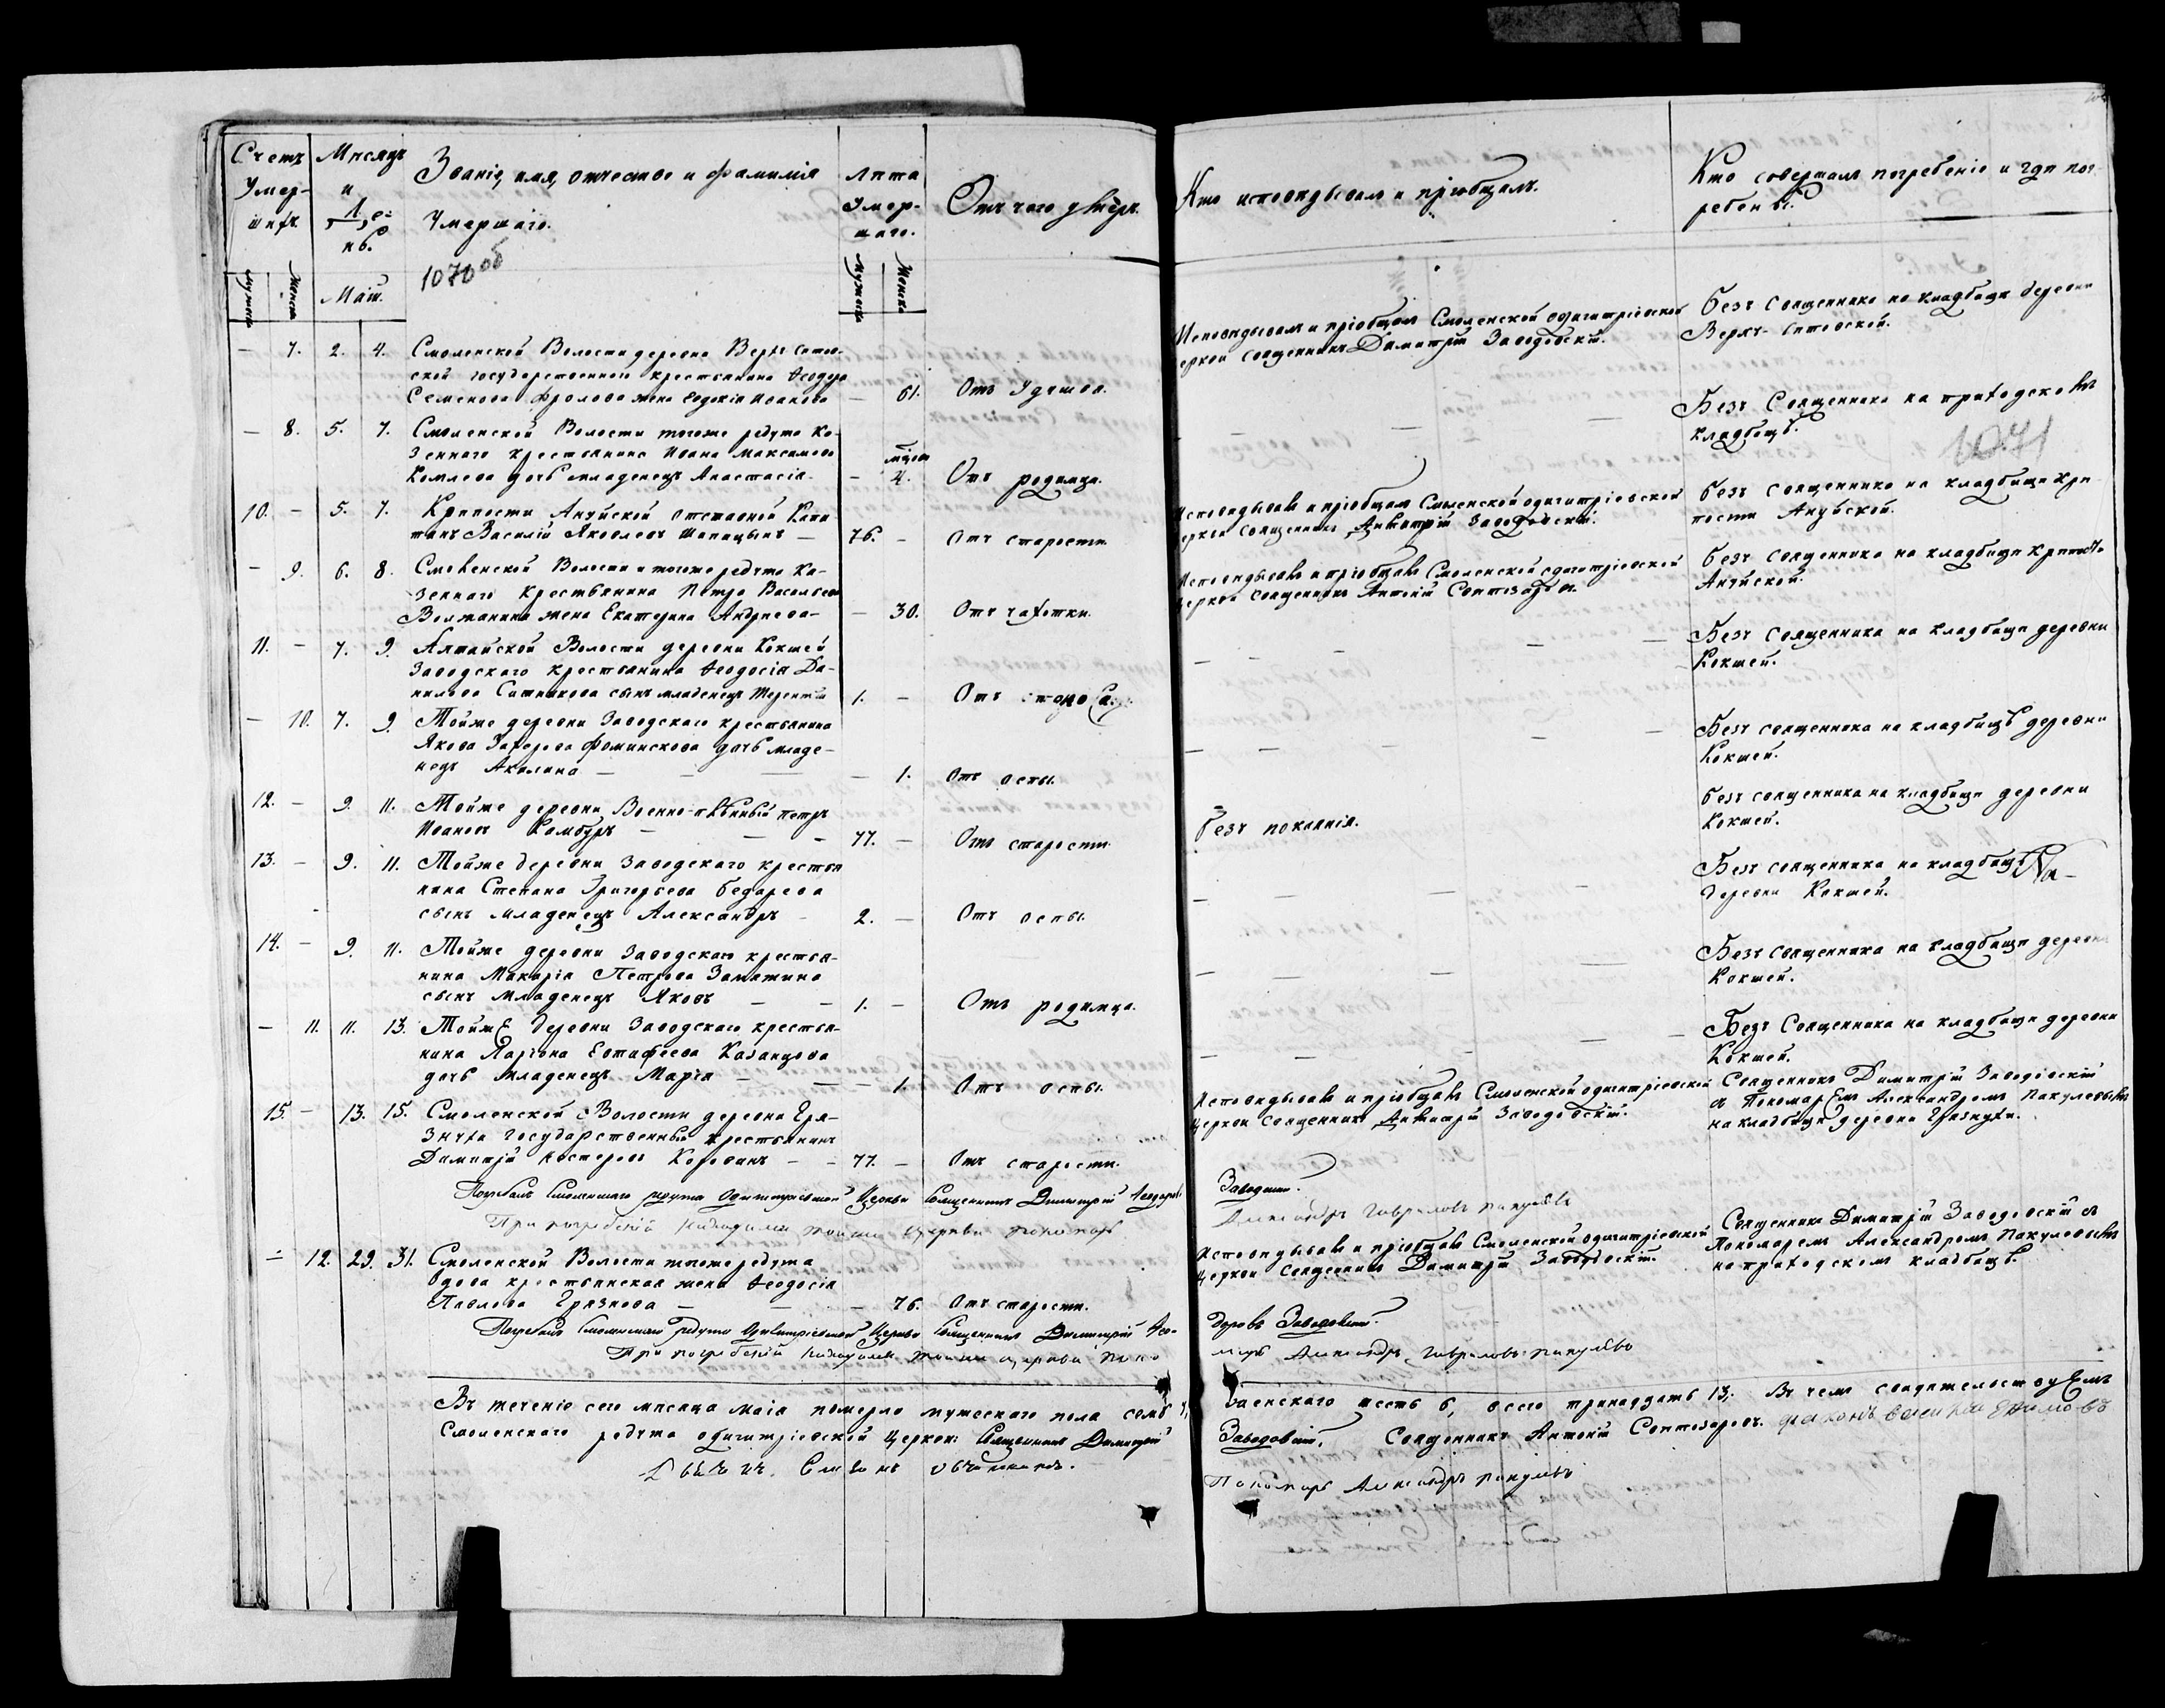 Счетъ Умер-шихъ
Мѣсяцъ и день.
Званіе, имя, отчество и фамилія
Умершаго.
Лѣта Умер-шаго.
Отъ чего умеръ.
Кто исповѣдывалъ и пріобщалъ.
Кто совершалъ погребеніе и гдѣ пог-
ребены.
1070 об
Маій.
— 7. 2. 4. Смоленской Волости деревни Верхъ-
ской государственнаго крестьянина Ѳеодора
Семенова Фролова жена Евдокія Иванова — 61. Отъ удушья.
Исповѣдывалъ и пріобщалъ Смоленской одигитріевской
церкви священникъ Димитрій Заводовскій.
Безъ священника на кладбищѣ деревни
Верхъ-
— 8. 5. 7. Смоленской Волости тогоже редута Ка-
зеннаго крестьянина Ивана Максимова
дочь младенецъ Анастасія — 4. Отъ родимца.
Безъ Священника на приходскомъ
кладбищѣ.
1071
10. — 5. 7. Крѣпости Ануйской отставной Капи-
танъ Василій Яковлевъ Шапацынъ — 76. — Отъ старости.
Исповѣдывалъ и пріобщалъ Смоленской одигитріевской
церкви священникъ Димитрій Заводовскій.
Безъ священника на кладбищѣ крѣ-
пости Ануйской.
— 9. 6. 8. Смоленской Волости и тогоже редута Ка-
зеннаго крестьянина Петра Васильева
Волжанина жена Екатерина Андреева — — 30. Отъ чахотки.
Исповѣдывалъ и пріобщалъ Смоленской одигитріевской
церкви священникъ Антоній
Безъ священника на кладбищѣ крѣпости
Ануйской.
11. — 7. 9. Алтайской Волости деревни Кокшей
Заводскаго крестьянина Ѳеодосія Да-
нилова Ситникова сынъ младенецъ Терентій 1. — Отъ
Безъ Священника на кладбищѣ деревни
Кокшей.
— 10. 7. 9. Тойже деревни Заводскаго крестьянина
Якова Захарова Фоминскова дочь младе-
нецъ Акилина — — 1. Отъ оспы.
Безъ священника на кладбищѣ деревни
Кокшей.
12. — 9. 11. Тойже деревни Военно-плѣнный Петръ
Ивановъ Камбуръ — 77. — Отъ старости.
Безъ покаянія.
Безъ священника на кладбищѣ деревни
Кокшей.
13. — 9. 11. Тойже деревни Заводскаго крестья
нина Степана Григорьева Бедарева
сынъ младенецъ Александръ 2. — Отъ оспы.
Безъ священника на кладбищѣ
деревни Кокшей.
14. — 9. 11. Тойже деревни Заводскаго крестья-
нина Макарія Петрова Замятина
сынъ младенецъ Яковъ — — 1. — Отъ родимца.
Безъ священника на кладбищѣ деревни
Кокшей.
— 11. 11. 13. Тойже деревни Заводскаго крестья-
нина Ларіона Евтафеева Казанцова
дочь младенецъ Марія — — — 1. Отъ оспы.
Безъ Священника на кладбищѣ деревни
Кокшей.
15. — 13. 15. Смоленской Волости деревни Гря-
знухи Государственный крестьянинъ
Димитрій Нестеровъ Корованъ — — 77. — Отъ старости.
Исповѣдывалъ и пріобщалъ Смоленской одигитріевской
церкви священникъ Димитрій Заводовскій.
Священникъ Димитрій Заводовскій
съ Пономаремъ Александромъ Пакулевымъ
на кладбищѣ деревни Грязнухи.
Погребалъ Смоленскаго редута Одигитріевской Церкви Священникъ Димитрій Ѳеодоровъ Заводовскій.
При погребеніи находился тойже церкви пономарь Александръ Гавриловъ Пакулевъ
— 12. 29. 31. Смоленской Волости тогоже редута
вдова крестьянская жена Ѳеодосія
Павлова Грязнова — — — 76. Отъ старости.
Исповѣдывалъ и пріобщалъ Смоленской одигитріевской
церкви священникъ Димитрій Заводовскій.
Священникъ Димитрій Заводовскій съ
Пономаремъ Александромъ Пакулевымъ
на приходскомъ кладбищѣ.
Погребалъ Смоленскаго редута Одигитріевской Церкви Священникъ Димитрій Ѳео-
доровъ Заводовскій.
При погребеніи находился тойже церкви поно-
марь Александръ Гавриловъ Пакулевъ
Въ теченіе сего мѣсяца Маія померло мужескаго пола семь 7, женскаго шесть 6, всего тринадцать 13; въ чемъ свидѣтельствуемъ
Смоленскаго редута одигитріевской церкви: Священникъ Димитрій Заводовскій, Священникъ Антоній
Пономарь Александръ Пакулевъ